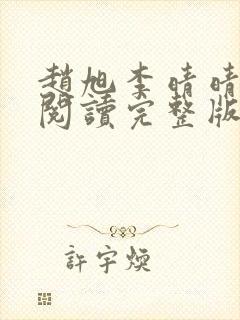 趙旭李晴晴
閱讀完整版
許宇煥